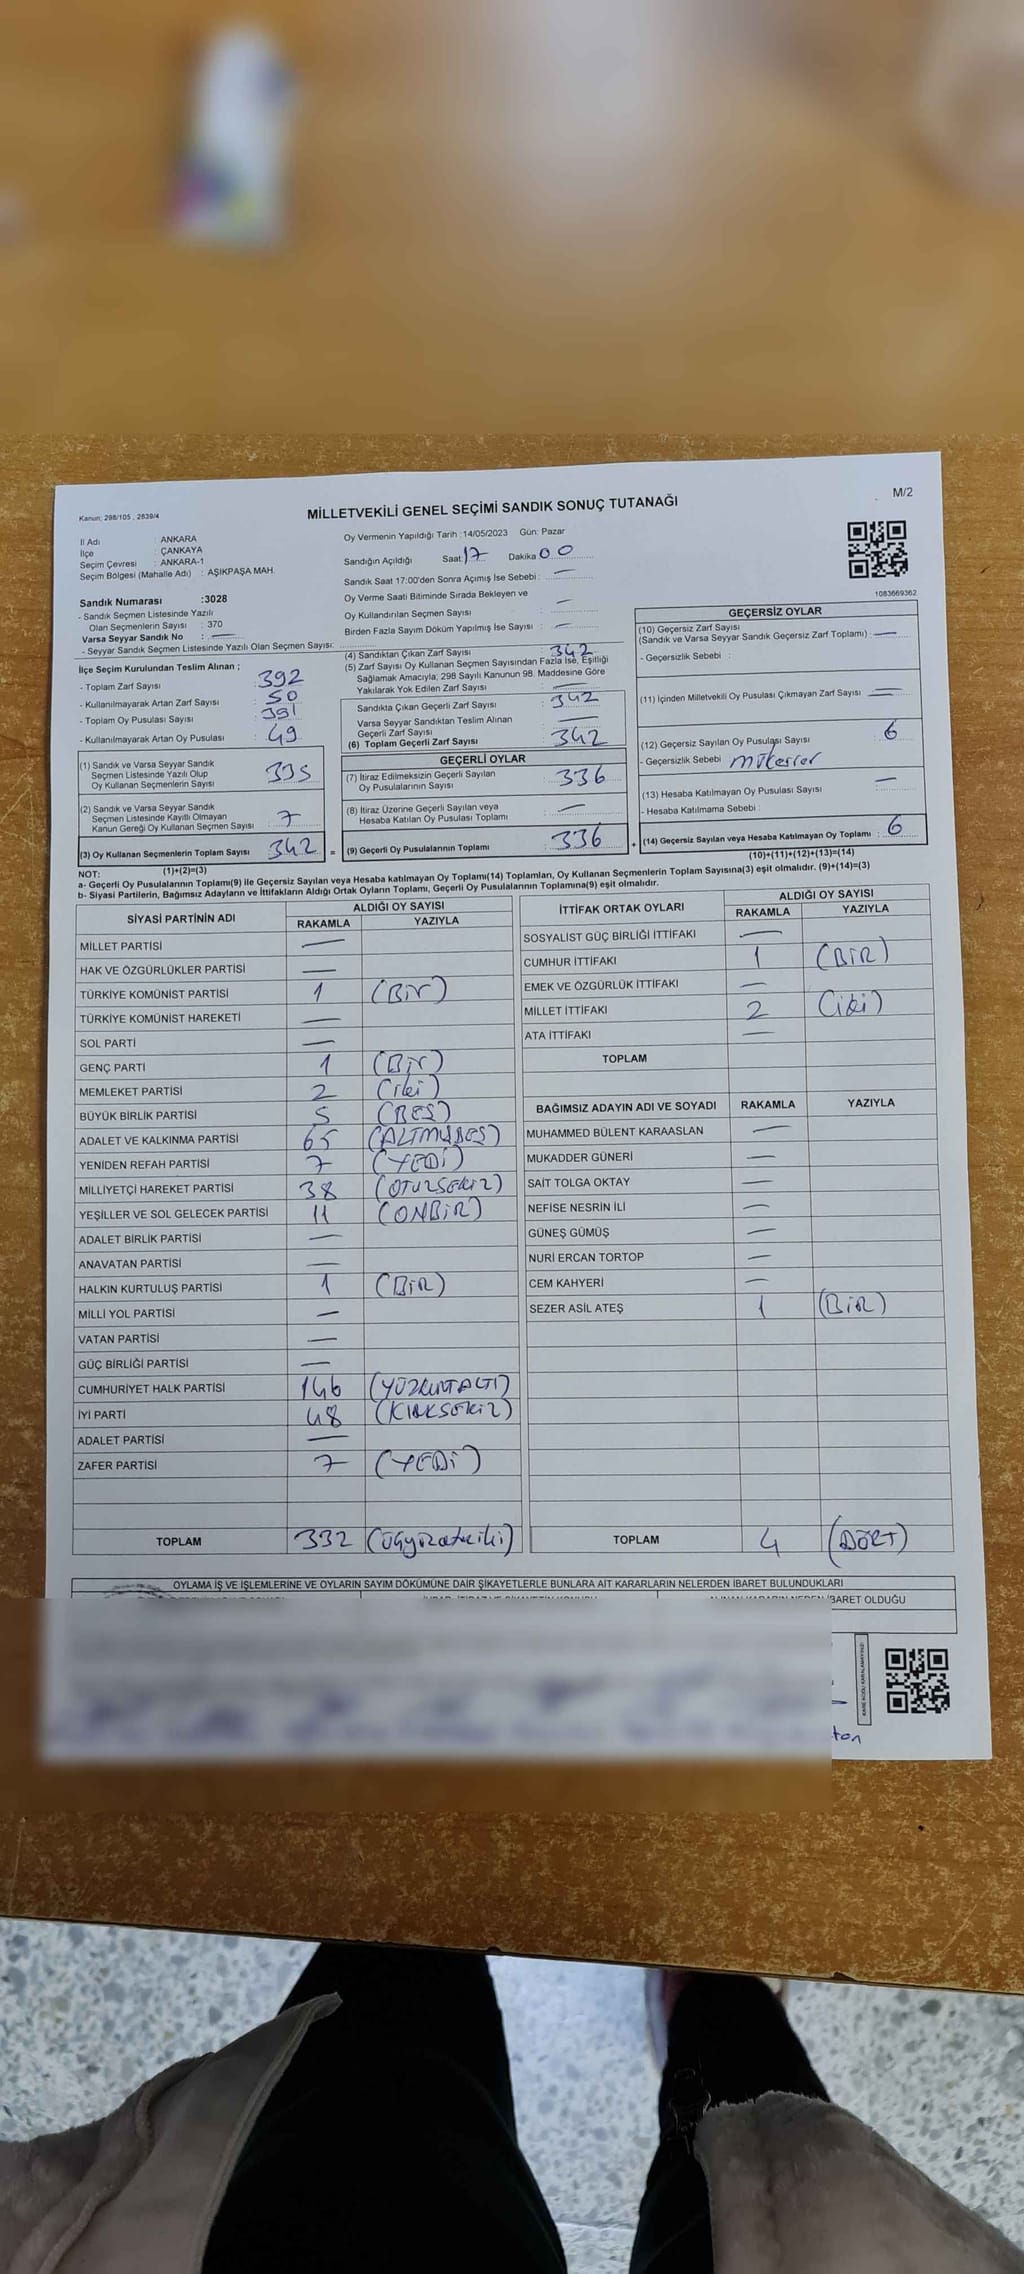 Kanun; 298/105 , 2839/4
MİLLETVEKİLİ GENEL SEÇİMİ SANDIK SONUÇ TUTANAĞI
M/2
İl Adı : ANKARA
İlçe : ÇANKAYA
Seçim Çevresi : ANKARA-1
Seçim Bölgesi (Mahalle Adı) : AŞIKPAŞA MAH.
Sandık Numarası :3028
- Sandık Seçmen Listesinde Yazılı
Olan Seçmenlerin Sayısı : 370
Varsa Seyyar Sandık No : —
- Seyyar Sandık Seçmen Listesinde Yazılı Olan Seçmen Sayısı:
Oy Vermenin Yapıldığı Tarih :14/05/2023 Gün: Pazar
Sandığın Açıldığı Saat: 17 Dakika 00
Sandık Saat 17:00'den Sonra Açımış İse Sebebi : —
Oy Verme Saati Bitiminde Sırada Bekleyen ve
Oy Kullandırılan Seçmen Sayısı : —
Birden Fazla Sayım Döküm Yapılmış İse Sayısı : —
1083669362
İlçe Seçim Kurulundan Teslim Alınan ;
- Toplam Zarf Sayısı : 392
- Kullanılmayarak Artan Zarf Sayısı : 50
- Toplam Oy Pusulası Sayısı : 391
- Kullanılmayarak Artan Oy Pusulası : 49
(1) Sandık ve Varsa Seyyar Sandık
Seçmen Listesinde Yazılı Olup
Oy Kullanan Seçmenlerin Sayısı : 335
(2) Sandık ve Varsa Seyyar Sandık
Seçmen Listesinde Kayıtlı Olmayan
Kanun Gereği Oy Kullanan Seçmen Sayısı : 7
(3) Oy Kullanan Seçmenlerin Toplam Sayısı : 342 =
(4) Sandıktan Çıkan Zarf Sayısı : 342
(5) Zarf Sayısı Oy Kullanan Seçmen Sayısından Fazla İse, Eşitliği
Sağlamak Amacıyla; 298 Sayılı Kanunun 98. Maddesine Göre
Yakılarak Yok Edilen Zarf Sayısı : —
Sandıkta Çıkan Geçerli Zarf Sayısı : 342
Varsa Seyyar Sandıktan Teslim Alınan
Geçerli Zarf Sayısı : —
(6) Toplam Geçerli Zarf Sayısı : 342
GEÇERLİ OYLAR
(7) İtiraz Edilmeksizin Geçerli Sayılan
Oy Pusulalarının Sayısı : 336
(8) İtiraz Üzerine Geçerli Sayılan veya
Hesaba Katılan Oy Pusulası Toplamı : —
(9) Geçerli Oy Pusulalarının Toplamı : 336 +
GEÇERSİZ OYLAR
(10) Geçersiz Zarf Sayısı
(Sandık ve Varsa Seyyar Sandık Geçersiz Zarf Toplamı) : —
- Geçersizlik Sebebi :
(11) İçinden Milletvekili Oy Pusulası Çıkmayan Zarf Sayısı : —
(12) Geçersiz Sayılan Oy Pusulası Sayısı : 6
- Geçersizlik Sebebi : mükerrer
(13) Hesaba Katılmayan Oy Pusulası Sayısı : —
- Hesaba Katılmama Sebebi :
(14) Geçersiz Sayılan veya Hesaba Katılmayan Oy Toplamı : 6
NOT: (1)+(2)=(3) (10)+(11)+(12)+(13)=(14)
a- Geçerli Oy Pusulalarının Toplamı(9) ile Geçersiz Sayılan veya Hesaba katılmayan Oy Toplamı(14) Toplamları, Oy Kullanan Seçmenlerin Toplam Sayısına(3) eşit olmalıdır. (9)+(14)=(3)
b- Siyasi Partilerin, Bağımsız Adayların ve İttifakların Aldığı Ortak Oyların Toplamı, Geçerli Oy Pusulalarının Toplamına(9) eşit olmalıdır.
SİYASİ PARTİNİN ADI ALDIĞI OY SAYISI
RAKAMLA YAZIYLA
MİLLET PARTİSİ —
HAK VE ÖZGÜRLÜKLER PARTİSİ —
TÜRKİYE KOMÜNİST PARTİSİ 1 (Bir)
TÜRKİYE KOMÜNİST HAREKETİ —
SOL PARTİ —
GENÇ PARTİ 1 (Bir)
MEMLEKET PARTİSİ 2 (iki)
BÜYÜK BİRLİK PARTİSİ 5 (BEŞ)
ADALET VE KALKINMA PARTİSİ 65 (ALTMIŞBEŞ)
YENİDEN REFAH PARTİSİ 7 (YEDİ)
MİLLİYETÇİ HAREKET PARTİSİ 38 (OTUZSEKİZ)
YEŞİLLER VE SOL GELECEK PARTİSİ 11 (ONBİR)
ADALET BİRLİK PARTİSİ —
ANAVATAN PARTİSİ —
HALKIN KURTULUŞ PARTİSİ 1 (BİR)
MİLLİ YOL PARTİSİ —
VATAN PARTİSİ —
GÜÇ BİRLİĞİ PARTİSİ —
CUMHURİYET HALK PARTİSİ 146 (YÜZKIRKALTI)
İYİ PARTİ 48 (KIRKSEKİZ)
ADALET PARTİSİ —
ZAFER PARTİSİ 7 (YEDİ)
TOPLAM 332 (Üçyüzotuziki)
İTTİFAK ORTAK OYLARI ALDIĞI OY SAYISI
RAKAMLA YAZIYLA
SOSYALİST GÜÇ BİRLİĞİ İTTİFAKI —
CUMHUR İTTİFAKI 1 (BİR)
EMEK VE ÖZGÜRLÜK İTTİFAKI —
MİLLET İTTİFAKI 2 (iki)
ATA İTTİFAKI —
TOPLAM
BAĞIMSIZ ADAYIN ADI VE SOYADI RAKAMLA YAZIYLA
MUHAMMED BÜLENT KARAASLAN —
MUKADDER GÜNERİ —
SAİT TOLGA OKTAY —
NEFİSE NESRİN İLİ —
GÜNEŞ GÜMÜŞ —
NURİ ERCAN TORTOP —
CEM KAHYERİ —
SEZER ASİL ATEŞ 1 (BİR)
TOPLAM 4 (DÖRT)
OYLAMA İŞ VE İŞLEMLERİNE VE OYLARIN SAYIM DÖKÜMÜNE DAİR ŞİKAYETLERLE BUNLARA AİT KARARLARIN NELERDEN İBARET BULUNDUKLARI